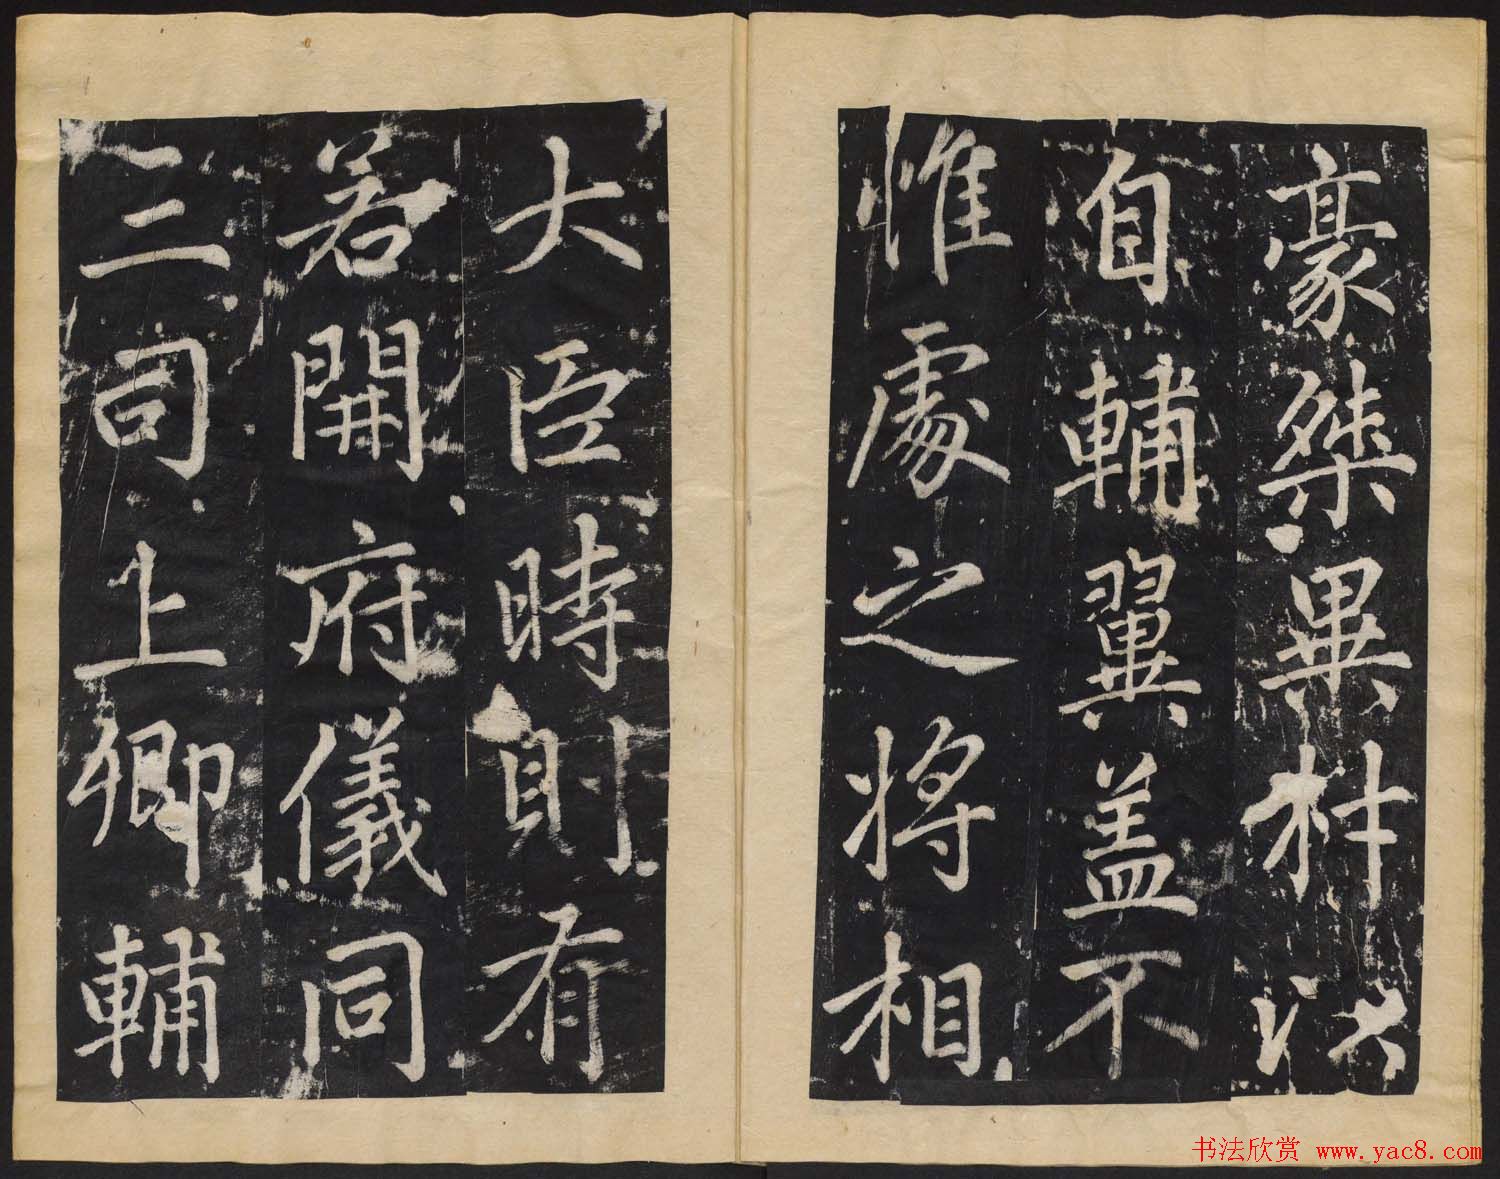 豪桀異材
自輔翼盖不
惟處之将相
大臣時則有
若開府儀同
三司上卿輔
书法欣赏 www.yac8.com